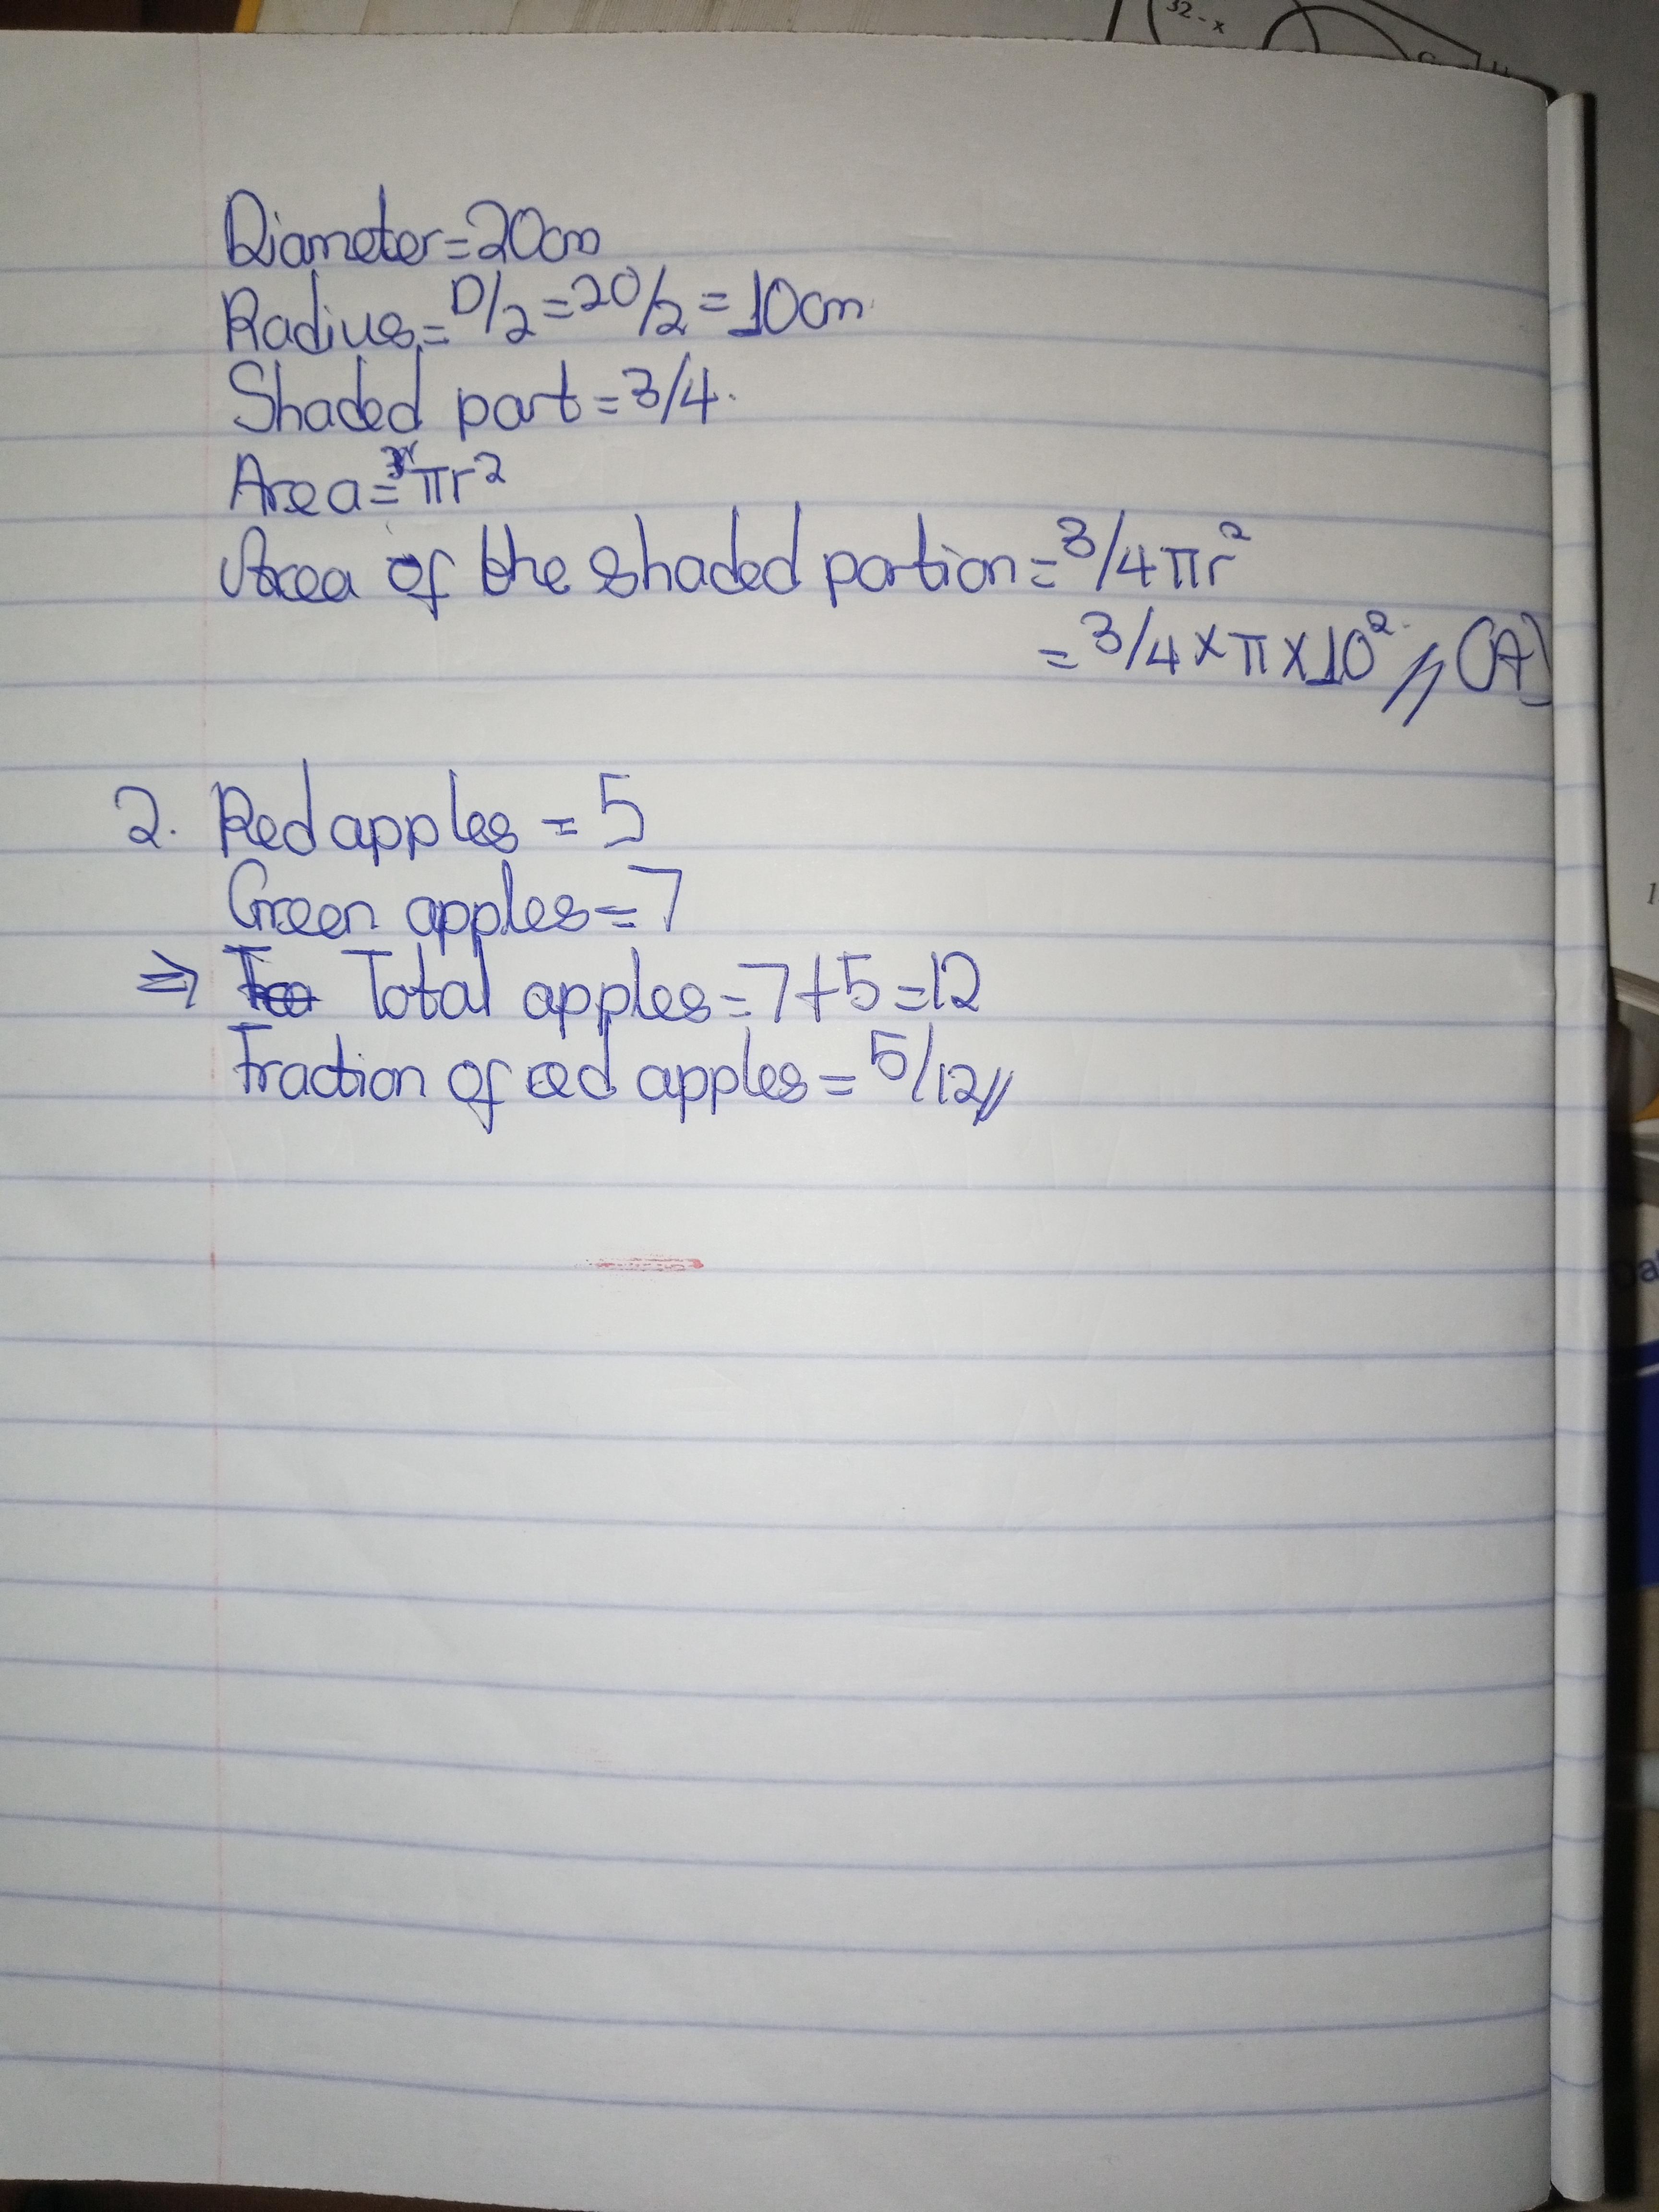 32-x
Diameter=20cm
Radius=D/2=20/2=10cm
Shaded part=3/4.
Area=πr²
Area of the shaded portion=3/4πr²
=3/4×π×10² // (A)
2. Red apples = 5
Green apples=7
⇒ Total apples=7+5=12
Fraction of red apples=5/12//